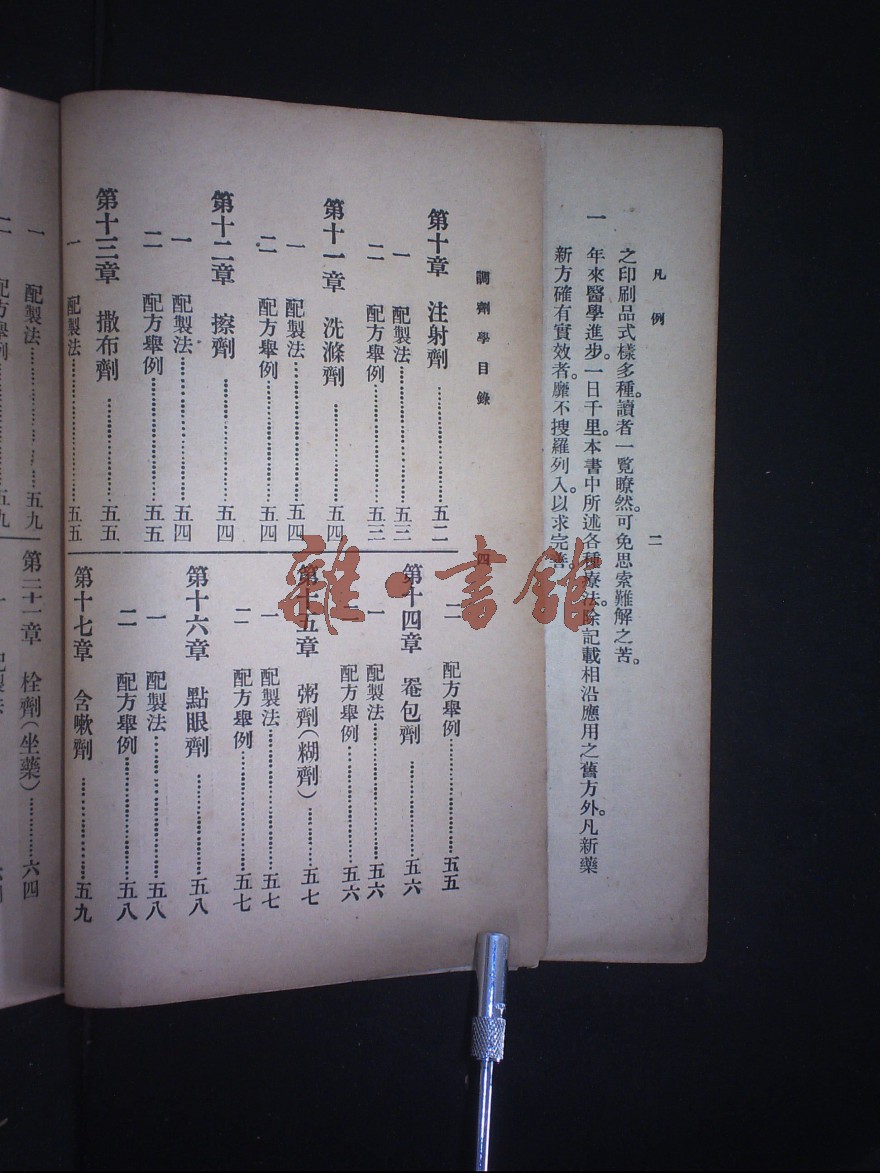 凡例
二
之印刷品式樣多種。讀者一覧瞭然。可免思索難解之苦。
一 年來醫學進步。一日千里。本書中所述各種療法。除記載相沿應用之舊方外。凡新藥
新方確有實效者。靡不搜羅列入。以求完善。
調劑學目錄
四
第十章 注射劑…………五二
一 配製法…………五三
二 配方舉例…………五三
第十一章 洗滌劑…………五四
一 配製法…………五四
二 配方舉例…………五四
第十二章 擦劑…………五四
一 配製法…………五四
二 配方舉例…………五五
第十三章 撒布劑…………五五
一 配製法…………五五
二 配方舉例…………五五
第十四章 罨包劑…………五六
一 配製法…………五六
二 配方舉例…………五六
第十五章 粥劑(糊劑)…………五七
一 配製法…………五七
二 配方舉例…………五七
第十六章 點眼劑…………五八
一 配製法…………五八
二 配方舉例…………五八
第十七章 含嗽劑…………五九
一 配製法…………五九
二 配方舉例…………五九
第二十一章 栓劑(坐藥)…………六四
一 配製法
雜·書館